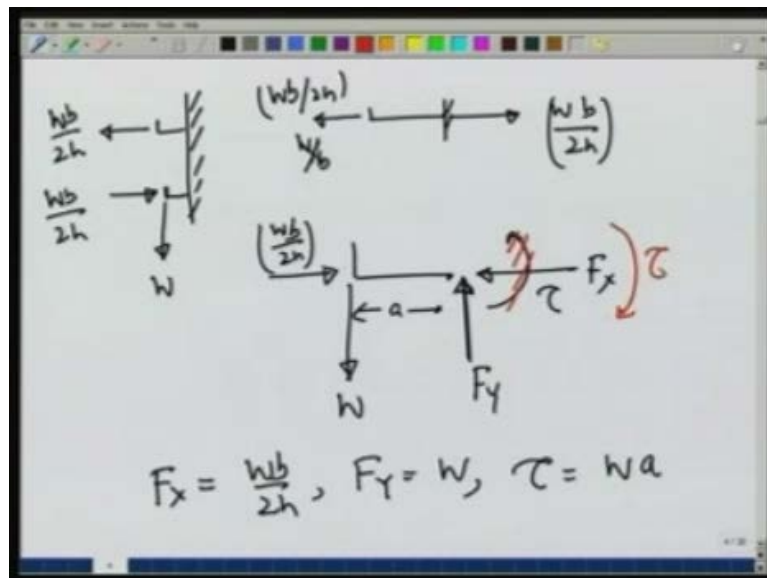 File Edit View Insert Actions Tools Help
Wb/2h
(Wb/2h)
W/b
(Wb/2h)
Wb/2h
W
(Wb/2h)
a
τ
Fx
τ
W
Fy
Fx = Wb/2h, Fy = W, τ = Wa